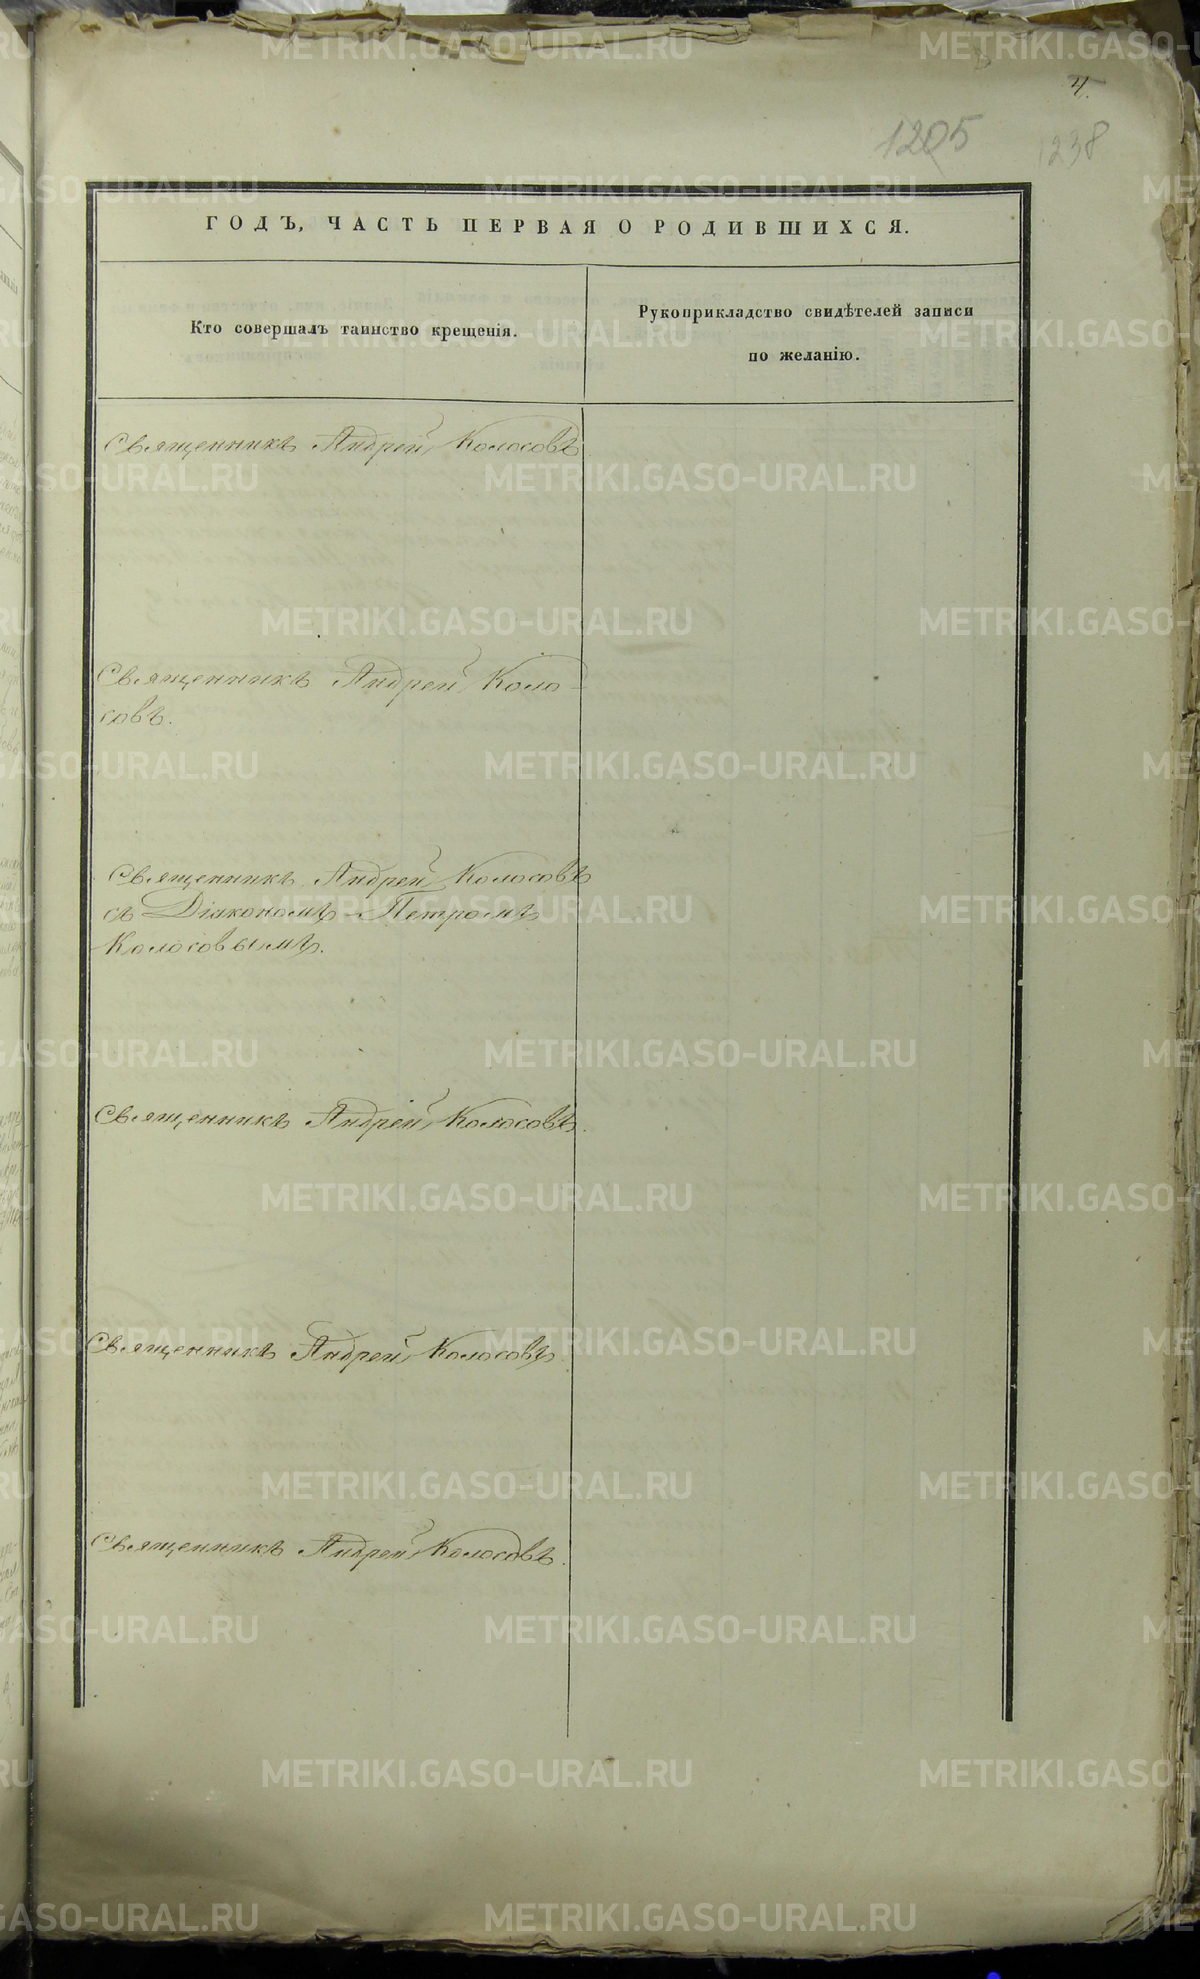 4.
1205
1238
ГОДЪ, ЧАСТЬ ПЕРВАЯ О РОДИВШИХСЯ.
Кто совершалъ таинство крещенія.
Рукоприкладство свидѣтелей записи
по желанію.
Священникъ Андрей Колосовъ.
Священникъ Андрей Коло-
совъ.
Священникъ Андрей Колосовъ
съ Діакономъ Петромъ
Колосовымъ.
Священникъ Андрей Колосовъ.
Священникъ Андрей Колосовъ.
Священникъ Андрей Колосовъ.
METRIKI.GASO-URAL.RU